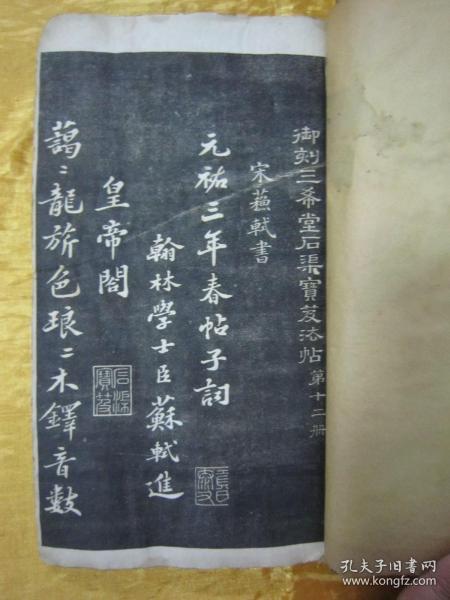 御刻三希堂石渠寶笈法帖 第十二册
宋蘇軾書
元祐三年春帖子詞
翰林學士臣蘇軾進
皇帝閤
藹〻龍旂色琅〻木鐸音數
石渠寶笈
孔夫子旧书网
www.kongfz.com